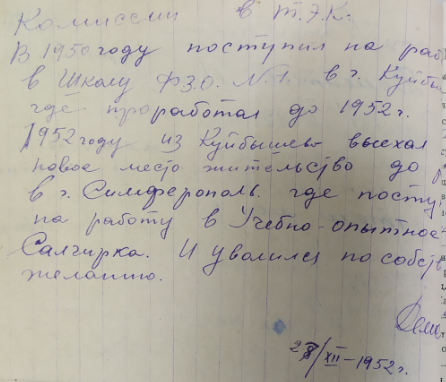 Комиссии в т.Э.К.
В 1950 году поступил на раб
в Школу ФЗО. №1. в г. Куйбы
где проработал до 1952 г.
1952 году из Куйбышева выехал
новое место жительство до
в г. Симферополь. где посту
на работу в Учебно-опытное
Салгирка. И уволился по собств
желанию.
28/XII-1952 г.